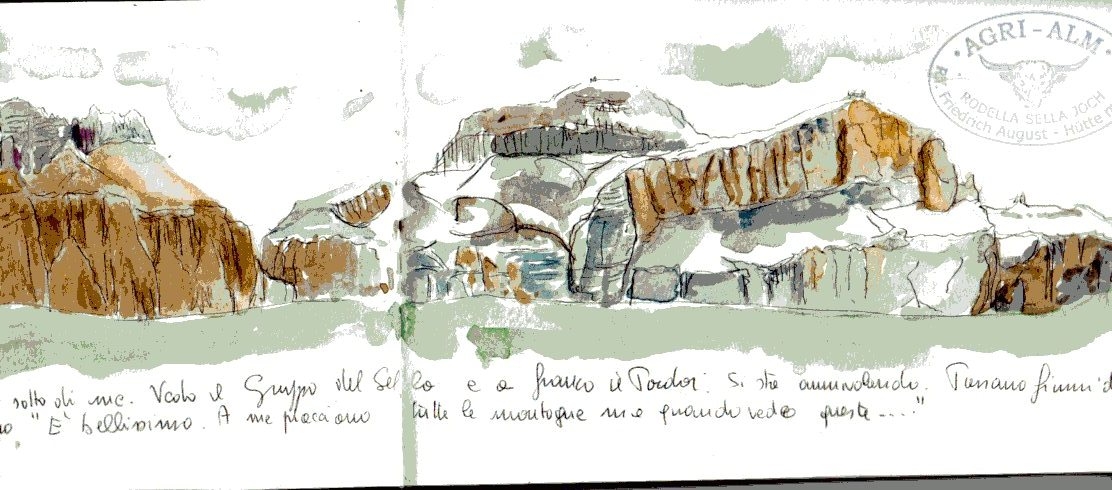 · AGRI-ALM ·
RODELLA SELLA JOCH
Friedrich August - Hütte
sotto di me. Vedo il Gruppo del Sella e a fianco il Pordoi. Si sta annuvolando. Passano
"E' bellissimo. A me piacciono tutte le montagne ma quando vedo queste...."